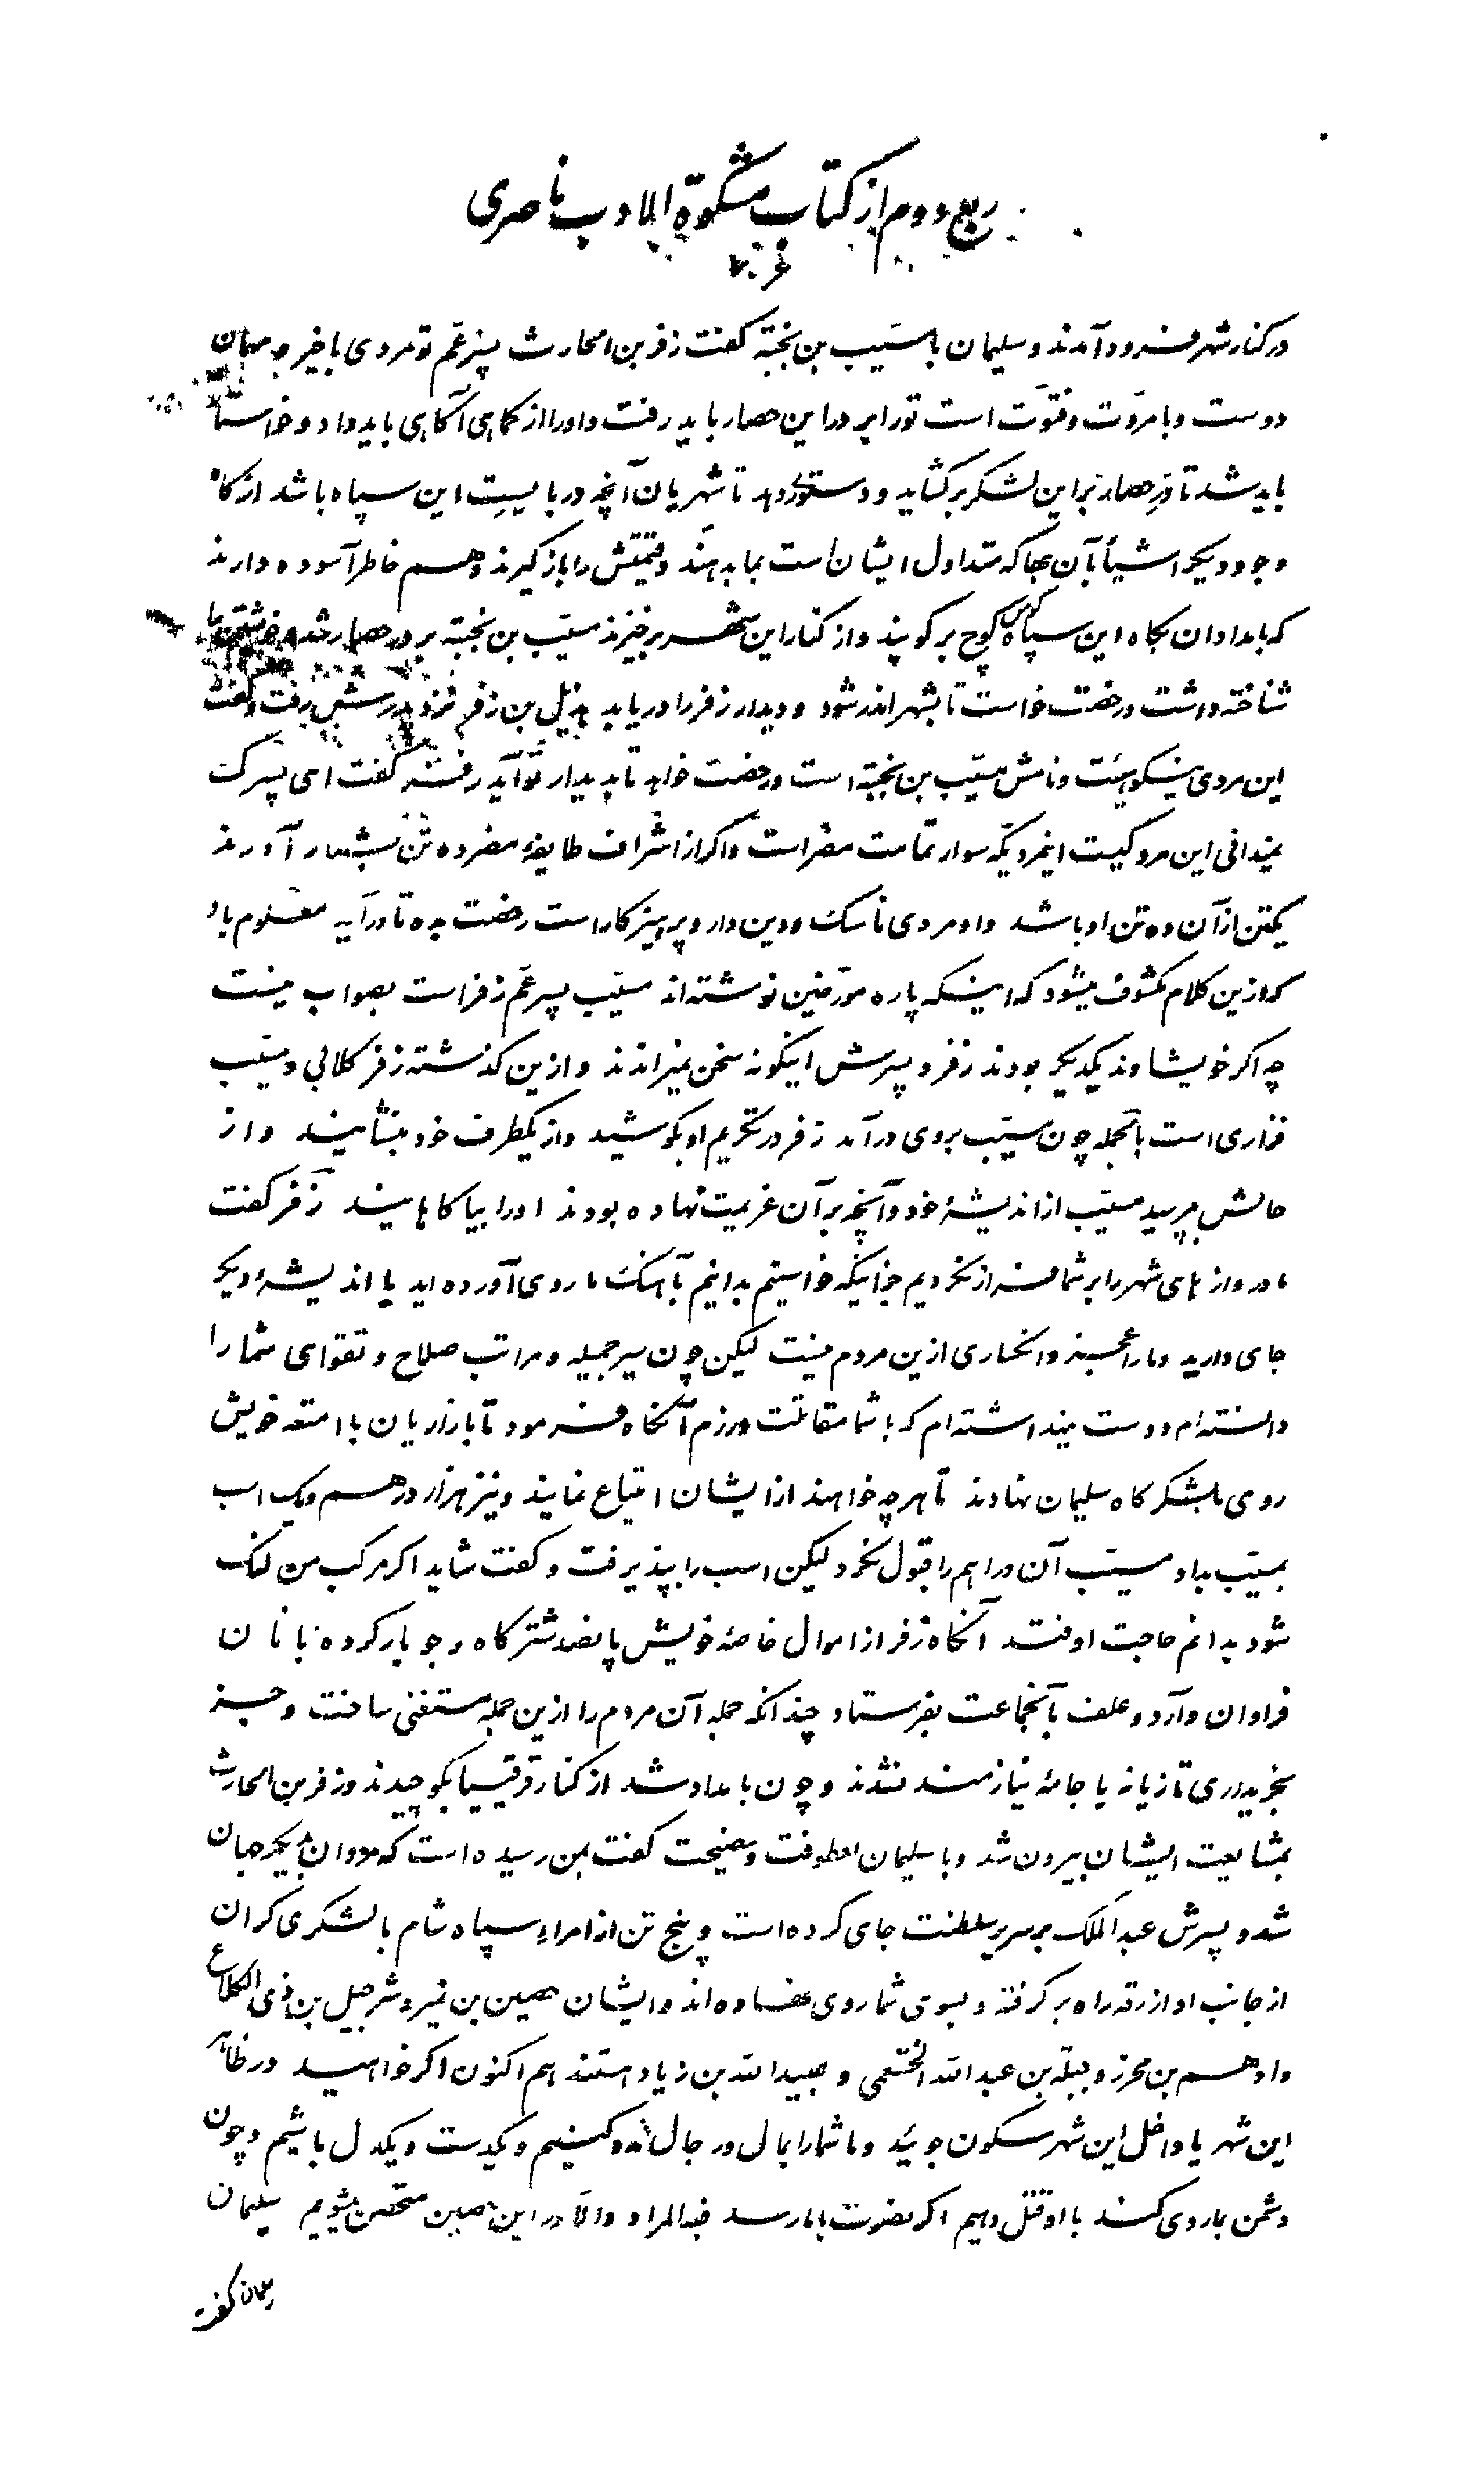 ربع دوم از کتاب مشکوة الادب ناصری
در کنار شهر فرود آمدند و سلیمان با مسیّب بن نجبة گفت زفر بن الحارث پسر عّم تو مردی با خیر و مهمان
دوست و با مروّت و فتوّت است تو را بر در این حصار باید رفت و او را از کماهی آگاهی باید داد و خواستار
باید شد تا درِ حصار بر این لشکر برگشاید و دستور دهد تا شهریان آنچه در بایستِ این سپاه باشد از کاه
و جو و دیگر اشیأ بآن بها که متداول ایشان است بما بدهند و قیمتش را باز گیرند و هم خاطر آسوده دارند
که بامدادان پگاه این سپاه کوس کوچ برکوبند و از کنار این شهر برخیزند مسیّب بن نجبة بر در حصار شد و خویشتن را
شناخته داشت و رخصت خواست تا بشهر اندر شود و دیدار زفر را دریابد هذیل بن زفر نزد پدرش برفت و گفت
این مردی نیکو هیئت و نامش مسیّب بن نجبة است و رخصت خواهد تا بدیدار تو آید زفر گفت ای پسرک
نمیدانی این مرد کیست اینمرد یکه سوار تمامت مضر است و اگر از اشراف طایفهٔ مضر ده تن بشمار آورند
یکتن از آن ده تن او باشد و او مردی ناسک و دین دار و پرهیزکار است رخصت بده تا درآید معلوم باد
که ازین کلام مکشوف میشود که اینکه پاره مورّخین نوشته‌اند مسیّب پسر عّم زفر است بصواب نیست
چه اگر خویشاوند یکدیگر بودند زفر و پسرش اینگونه سخن نمیراندند و ازین گذشته زفر کلابی و مسیّب
فزاری است بالجمله چون مسیّب بروی درآمد زفر در تکریم او بکوشید و از یکطرف خود بنشانید و از
حالش بپرسید مسیّب از اندیشهٔ خود و آنچه بر آن عزیمت نهاده بودند او را بیاگاهانید زفر گفت
ما دروازه‌های شهر را بر شما فراز نکردیم جز اینکه خواستیم بدانیم بآهنگ ما روی آورده‌اید یا اندیشهٔ دیگر
جای دارید و ما را عجز و انکساری ازین مردم نیست لیکن چون سیر جمیله و مراتب صلاح و تقوای شما را
دانسته‌ام دوست نمیداشته‌ام که با شما مقاتلت ورزم آنگاه فرمود تا بازاریان با امتعه خویش
روی بلشکرگاه سلیمان نهادند تا هرچه خواهند از ایشان ابتیاع نمایند و نیز هزار درهم و یک اسب
بمسیّب بداد مسیّب آن دراهم را قبول نکرد لیکن اسب را بپذیرفت و گفت شاید اگر مرکب من لنگ
شود بدانم حاجت اوفتد آنگاه زفر از اموال خاصهٔ خویش پانصد شتر کاه و جو بار کرده با نان
فراوان و آرد و علف بآنجماعت بفرستاد چندانکه جمله آن مردم را ازین جمله مستغنی ساخت و جز
بخریداری تازیانه یا جامهٔ نیازمند نشدند و چون بامداد شد از کنار قرقیسیا بکوچیدند و زفر بن الحارث
بمشایعت ایشان بیرون شد و با سلیمان بعطوفت و نصیحت گفت بمن رسیده است که مروان بدیگر جهان
شد و پسرش عبد الملک بر سریر سلطنت جای کرده است و پنج تن از امراءِ سپاه شام با لشکری گران
از جانب او از رقه راه بر گرفته و بسوی شما روی نهاده‌اند و ایشان حصین بن نمیر و شرحبیل بن ذی الکلاع
و ادهم بن محرز و جبلة بن عبد الله الخثعمی و عبیدالله بن زیاد هستند هم اکنون اگر خواهید در ظاهر
این شهر یا داخل این شهر سکون جوئید و ما شما را بمال و رجال مدد کنیم و یکدست و یکدل باشیم و چون
دشمن بما روی کند با او قتال دهیم اگر نصرت بما رسد فهو المراد و الّا در این حصین متحصن میشویم سلیمان
سلیمان گفت